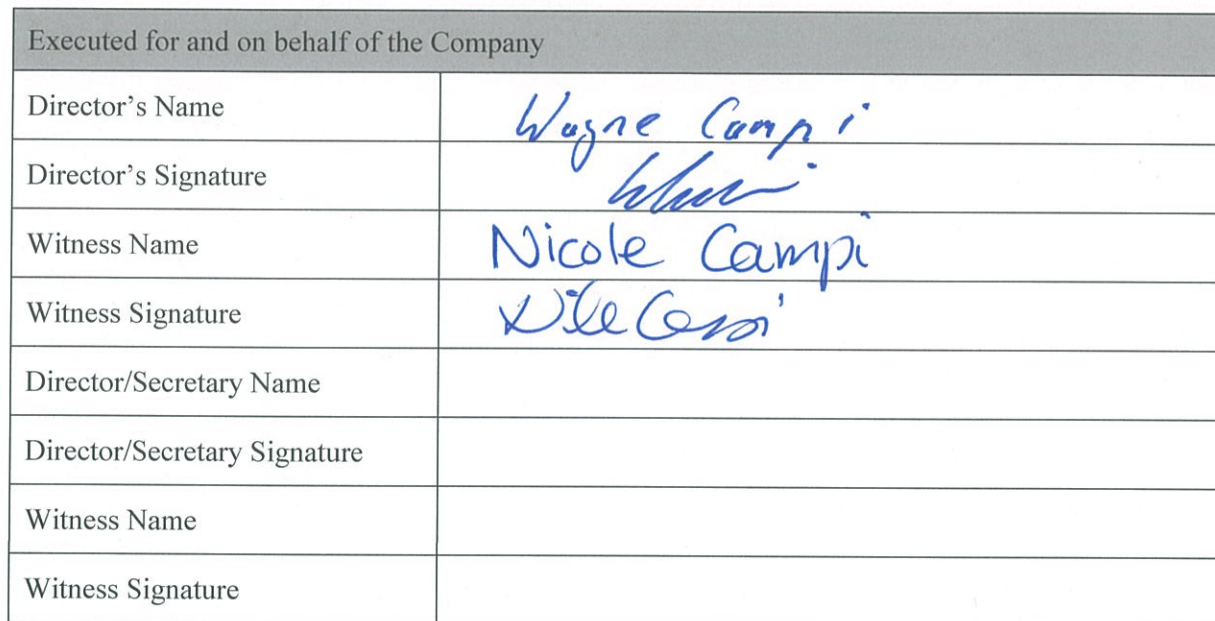 Executed for and on behalf of the Company
Director's Name Wayne Campi
Director's Signature
Witness Name Nicole Campi
Witness Signature
Director/Secretary Name
Director/Secretary Signature
Witness Name
Witness Signature